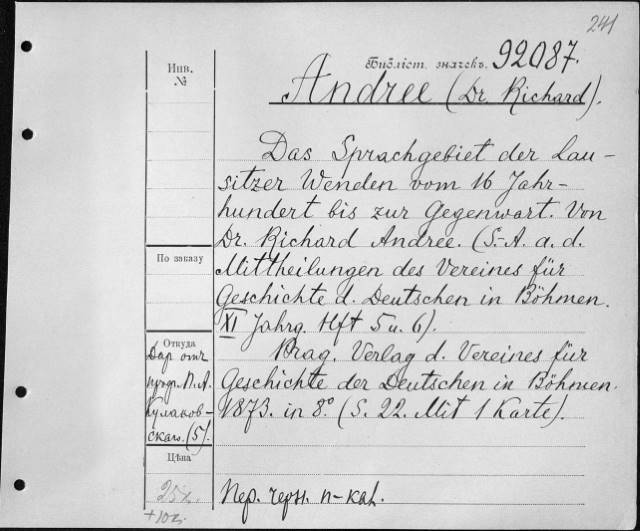 241
Библіст. значекъ. 92087.
Инв.
№
Andree (Dr. Richard).
Das Sprachgebiet der Lau-
sitzer Wenden vom 16 Jahr-
hundert bis zur Gegenwart. Von
Dr. Richard Andree. (S.-A. a. d.
Mittheilungen des Vereines für
Geschichte d. Deutschen in Böhmen.
XI Jahrg. Hft 5 u. 6).
Prag. Verlag d. Vereines für
Geschichte der Deutschen in Böhmen.
1873. in 8º. (S. 22. Mit 1 Karte).
По заказу
Откуда
Даръ отъ
проф. П. А.
Кулаков-
скаго. (5).
Цѣна
25к.
+10к.
Пер. черн. п-каљ.